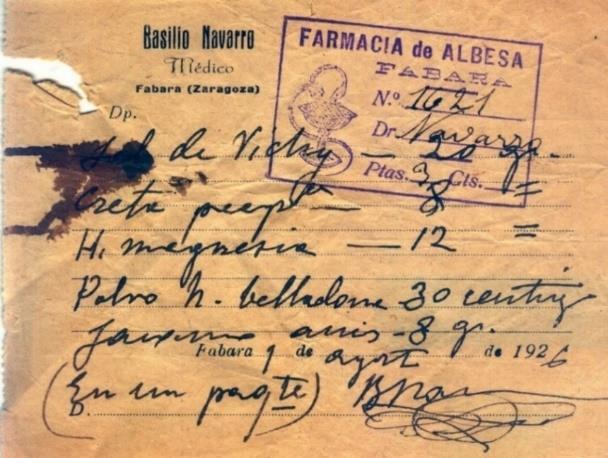 Basilio Navarro
Médico
Fabara (Zaragoza)
FARMACIA de ALBESA
FABARA
N.º 1621
Dr. Navarro
Ptas. 3 Cts.
Dp.
Sal de Vichy — 20 gr.
Creta prep — 8 =
H. magnesia — 12 =
Polvo h. belladona 30 centig
anis - 8 gr.
Fabara 9 de agost de 1926
(En un paqte)
D.